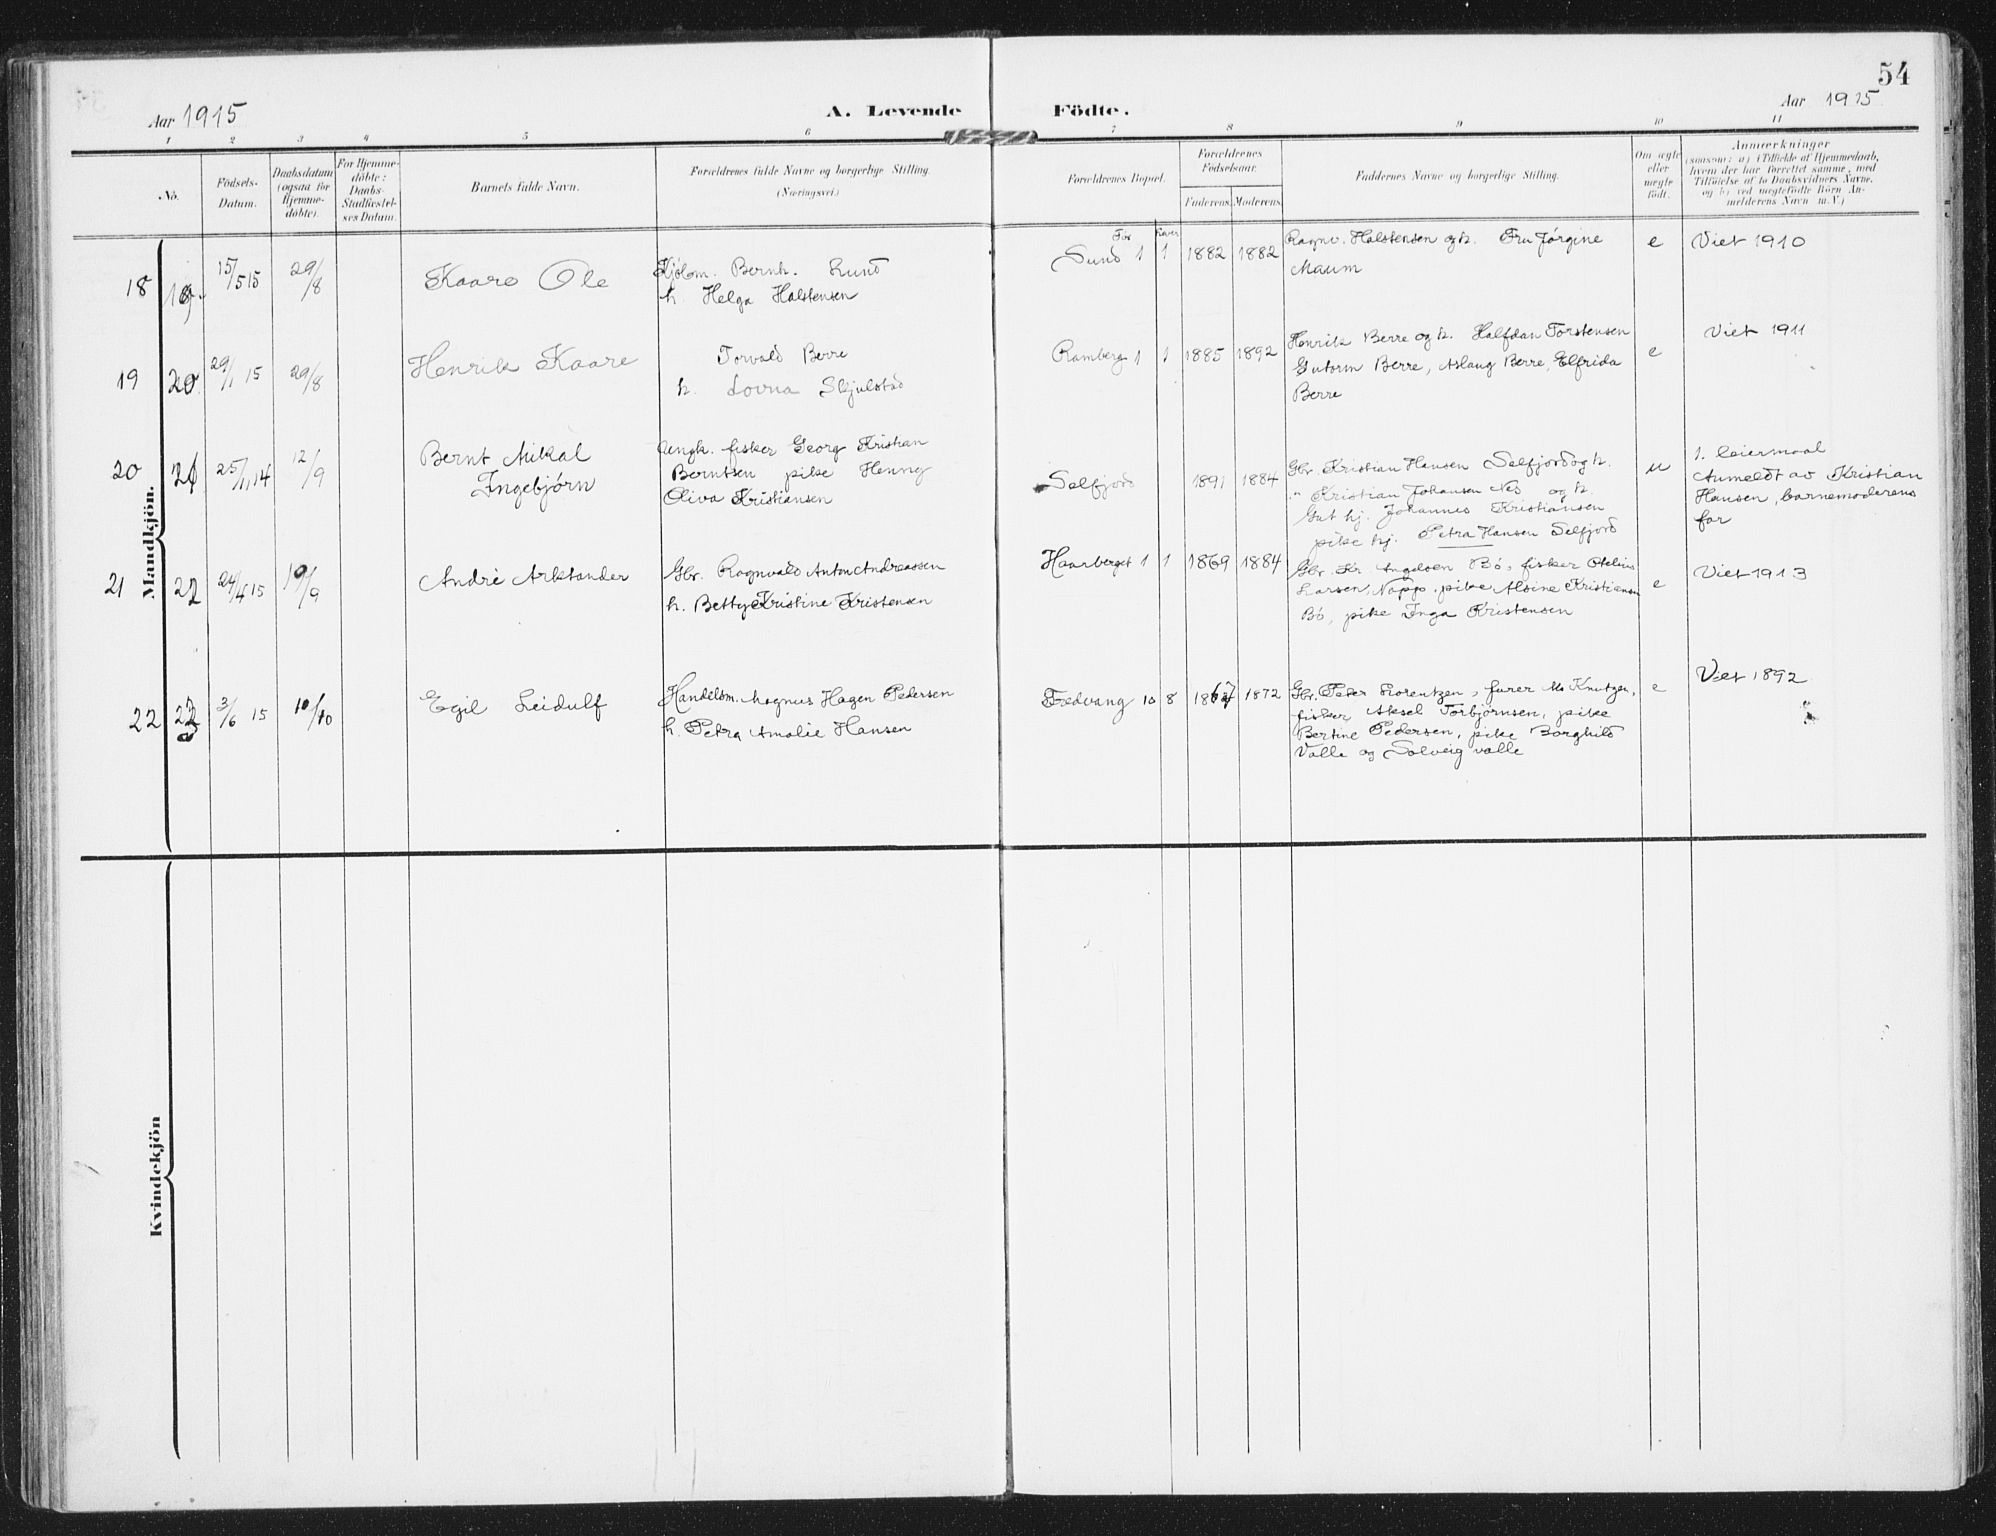 54
Aar 1915
A. Levende Födte.
Aar 1915
1 2 3 4 5 6 7 8 9 10 11
No.
Födsels-Datum.
Daabsdatum (ogsaa for Hjemme-döbte).
For Hjemme-döbte: Daabs-Stadfæstel-ses Datum.
Barnets fulde Navn.
Forældrenes fulde Navne og borgerlige Stilling
(Næringsvei)
Forældrenes Bopæl.
Forældrenes Födselsaar.
Faderens Moderens
Faddernes Navne og borgerlige Stilling.
Om ægte eller uægte födt.
Anmærkninger
(saasom: a) i Tilfælde af Hjemmedaab,
hvem der har forrettet samme, med
Tilföielse af to Daabsvidners Navne,
og b) ved uægtefödte Börn An-
melderens Navn m.V.)
Mandkjön.
18 19. 15/5 15 29/8
Kaare Ole
Kjöbm. Bernh. Lund
h. Helga Halstensen
Sund 1 1 1882 1882
Ragnv. Halstensen og h. Fru Jörgine
Maum
e
Viet 1910
19 20. 29/1 15 29/8
Henrik Kaare
Torvald Berre
h. Lovna Skjulstad
Ramberg 1 1 1885 1892
Henrik Berre og h. Halfdan Torstensen
Gutorm Berre, Aslaug Berre, Elfrida
Berre
e
Viet 1911
20 21 25/11 14 12/9
Bernt Mikal
Ingebjörn
Ungk. fisker Georg Kristian
Berntsen pike Henny
Oliva Kristiansen
Selfjord 1891 1884
Gbr. Kristian Hansen Selfjord og h.
" Kristian Johansen Nes og h.
Gut hj. Johannes Kristiansen
pike hj. Petra Hansen Selfjord
u
1. leiermaal
Anmeldt av Kristian
Hansen, barnemoderens
far
21 22 24/4 15 19/9
Andrè Arktander
Gbr. Ragnvald Anton Andreassen
h. Betty Kristine Kristensen
Haarberget 1 1 1869 1884
Gbr. Kr. Angelsen Bö, fisker
Larsen, Napp, pike Alvine Kristiansen
Bö, pike Inga Kristensen
e
Viet 1913
22 23 3/6 15 10/10
Egil Leidulf
Handelsm. Magnus Hagen Pedersen
h. Petra Amalie Hansen
Fredvang 10 8 1867 1872
Gbr. Peder Lorentzen, furer M. Knutzen,
fisker Aksel Torbjörnsen, pike
Bertine Pedersen, pike Borghild
Valle og Solveig valle
e
Viet 1892
Kvindekjön